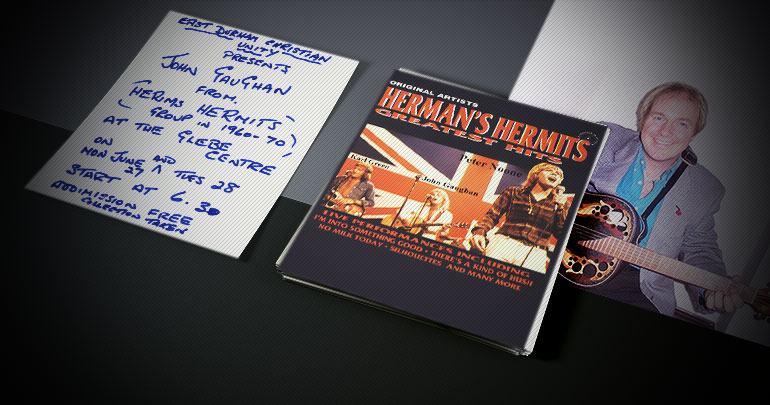 EAST DURHAM CHRISTIAN
UNITY
PRESENTS
JOHN GAUGHAN
FROM.
HERMS HERMITS
( GROUP IN 1960-70 )
AT THE GLEBE
CENTRE
ON
MON JUNE 27 AND TUES 28
START AT 6.30
ADDMISSION FREE
COLLECTION TAKEN
ORIGINAL ARTISTS
HERMAN'S HERMITS
GREATEST HITS
Karl Green
John Gaughan
Peter Noone
LIVE PERFORMANCES INCLUDING
I'M INTO SOMETHING GOOD • THERE'S A KIND OF HUSH
NO MILK TODAY • SILHOUETTES AND MANY MORE